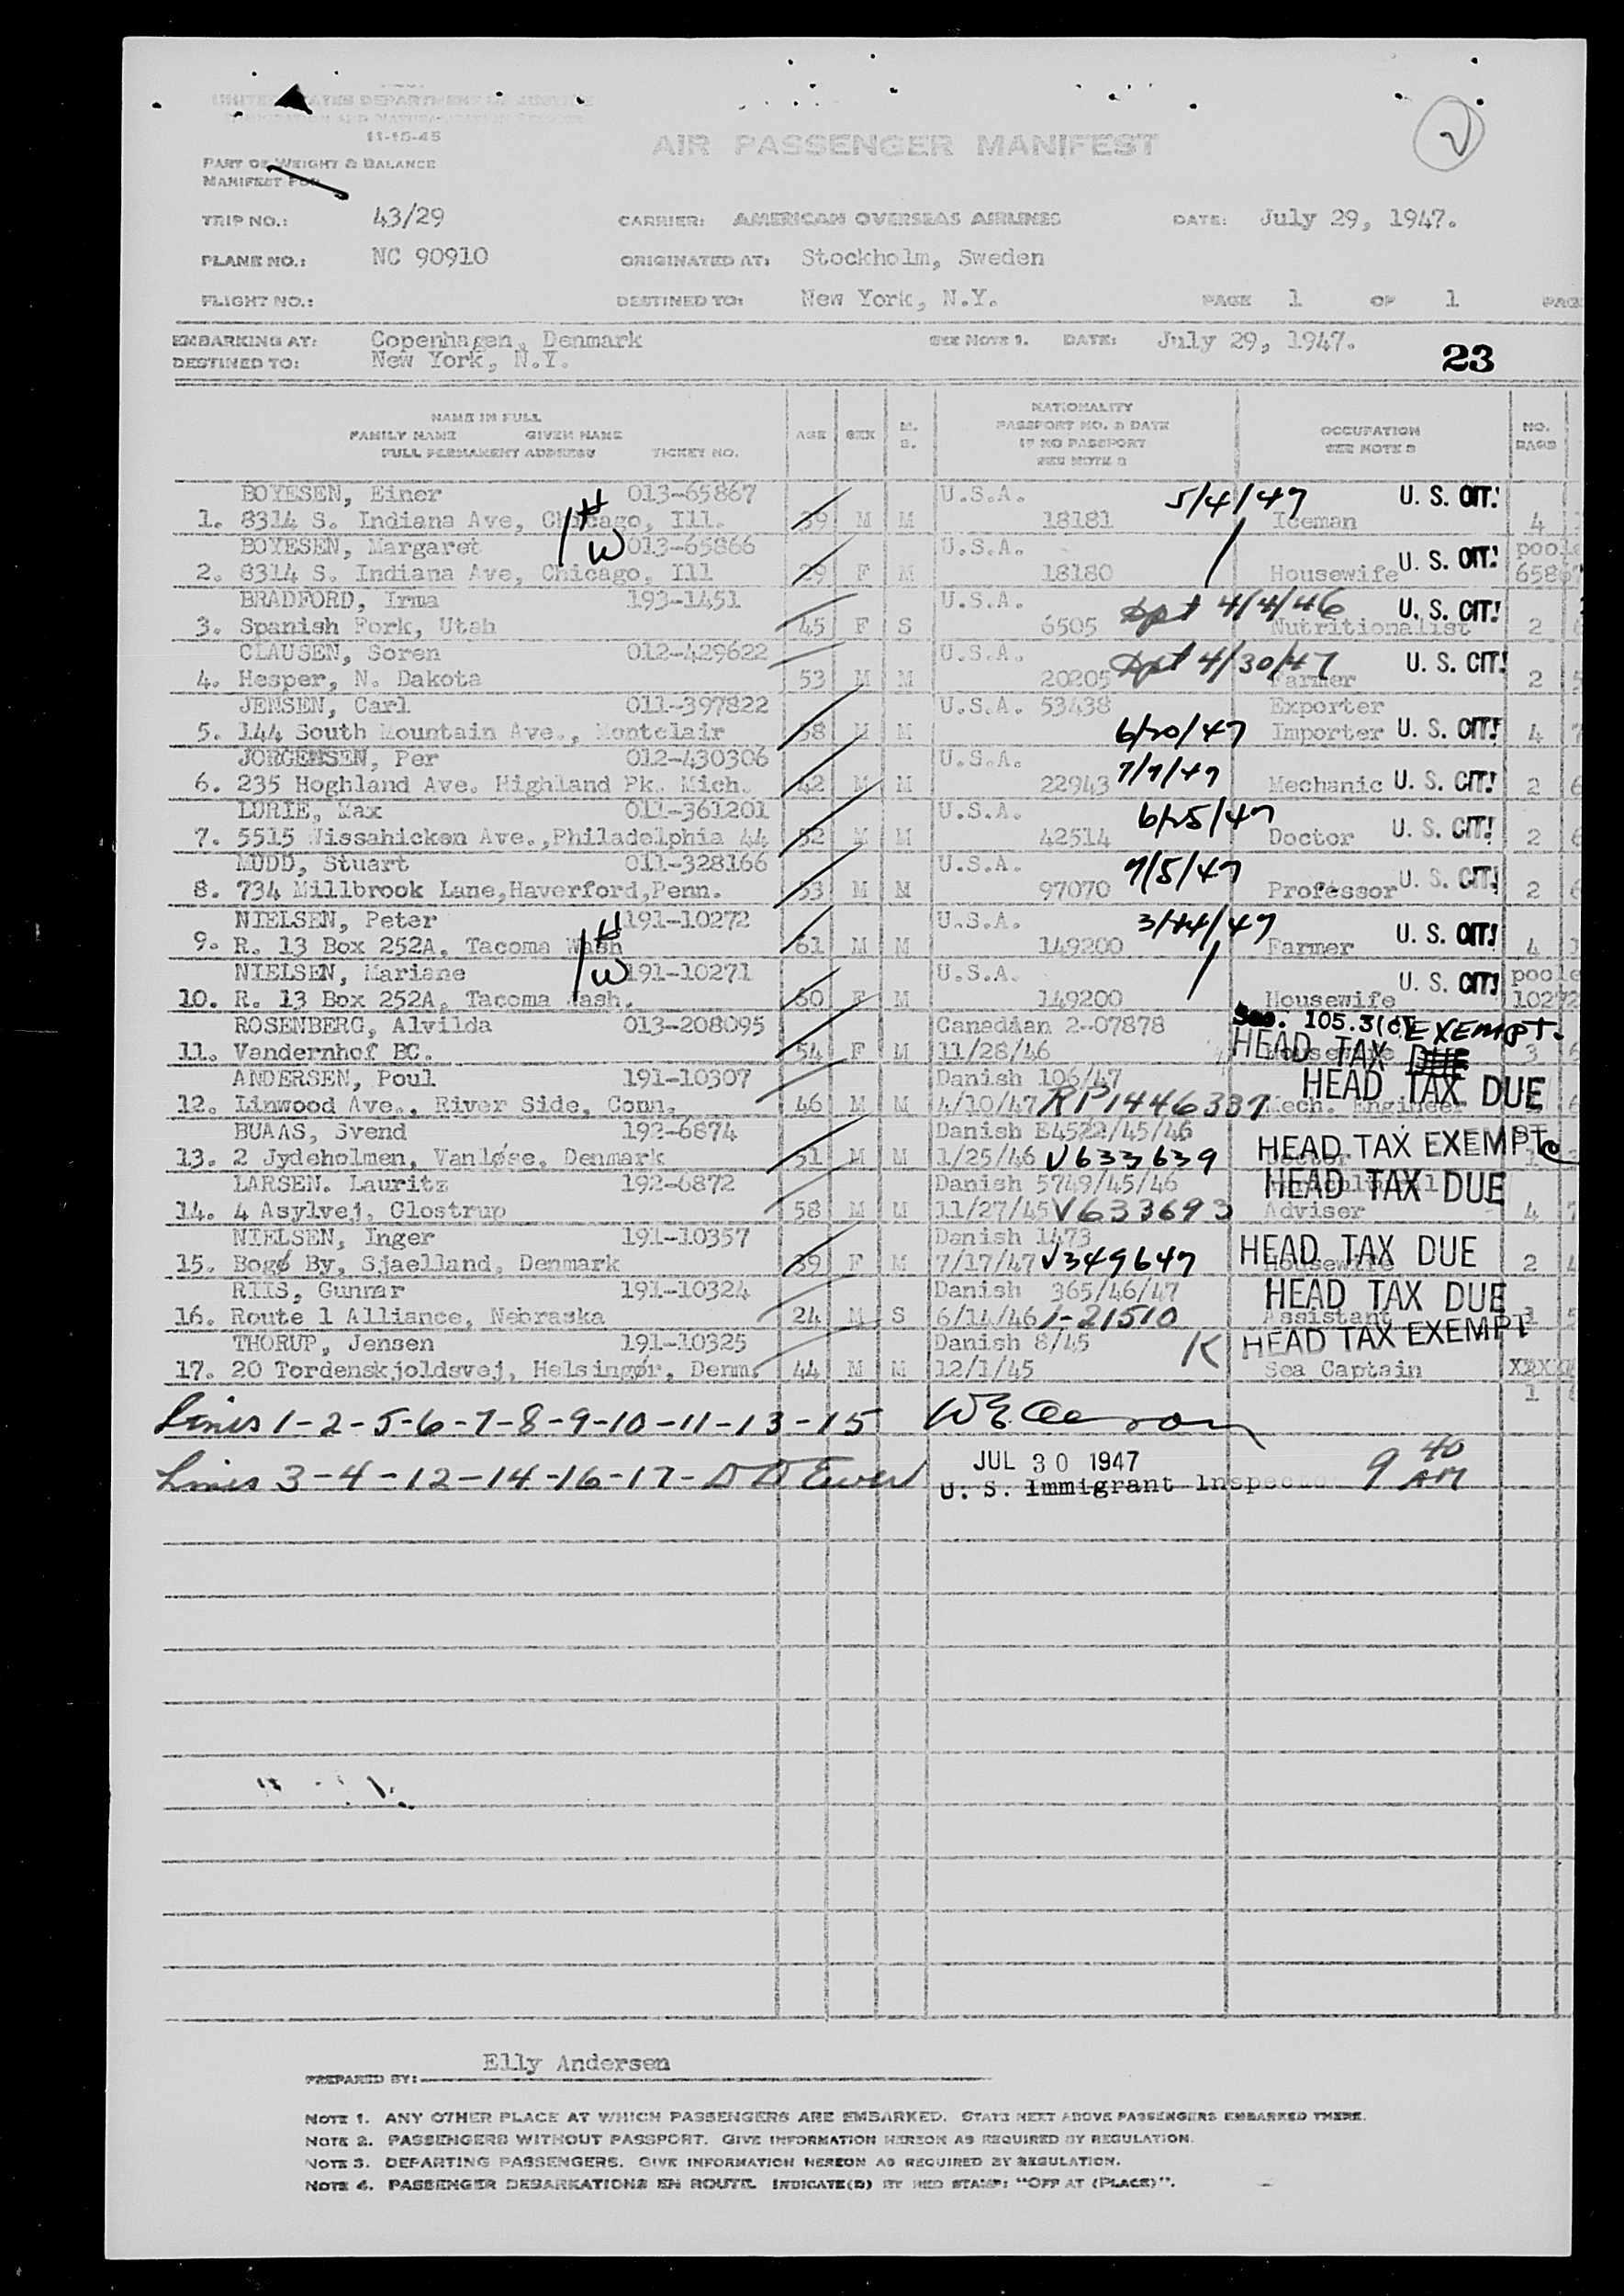 UNITED STATES DEPARTMENT OF JUSTICE
IMMIGRATION AND NATURALIZATION SERVICE
11-15-45
PART OF WEIGHT & BALANCE
MANIFEST FOR
AIR PASSENGER MANIFEST
TRIP NO.: 43/29 CARRIER: AMERICAN OVERSEAS AIRLINES DATE: July 29, 1947.
PLANE NO.: NC 90910 ORIGINATED AT: Stockholm, Sweden
FLIGHT NO.: DESTINED TO: New York, N.Y. PAGE 1 OF 1
EMBARKING AT: Copenhagen, Denmark SEE NOTE 1. DATE: July 29, 1947.
DESTINED TO: New York, N.Y. 23
NAME IN FULL
FAMILY NAME GIVEN NAME
FULL PERMANENT ADDRESS TICKET NO. AGE SEX M. S. NATIONALITY PASSPORT NO. & DATE IF NO PASSPORT SEE NOTE 2 OCCUPATION SEE NOTE 3 NO. BAGS
BOYESEN, Einer 013-65867 U.S.A. 5/4/47 U. S. CIT!
1. 8314 S. Indiana Ave, Chicago, Ill. H 39 M M 18181 Iceman 4
BOYESEN, Margaret W 013-65866 U.S.A. U. S. CIT! poole
2. 8314 S. Indiana Ave, Chicago, Ill 29 F M 18180 Housewife 6586
BRADFORD, Irma 193-1451 U.S.A. Dpt 4/4/46 U. S. CIT!
3. Spanish Fork, Utah 45 F S 6505 Nutritionalist 2
CLAUSEN, Soren 012-429622 U.S.A. Dpt 4/30/47 U. S. CIT!
4. Hesper, N. Dakota 53 M M 20205 Farmer 2
JENSEN, Carl 011-397822 U.S.A. 53438 Exporter
5. 144 South Mountain Ave., Montclair 58 M M 6/20/47 Importer U. S. CIT! 4
JORGENSEN, Per 012-430306 U.S.A. 7/7/47
6. 235 Hoghland Ave. Highland Pk. Mich. 42 M M 22943 Mechanic U. S. CIT! 2
LURIE, Max 011-361201 U.S.A. 6/25/47
7. 5515 Wissahicken Ave.,Philadelphia 44 52 M M 42514 Doctor U. S. CIT! 2
MUDD, Stuart 011-328166 U.S.A. 7/5/47
8. 734 Millbrook Lane,Haverford,Penn. 53 M M 97070 Professor U. S. CIT! 2
NIELSEN, Peter H 191-10272 U.S.A. 3/14/47
9. R. 13 Box 252A, Tacoma Wash 61 M M 149200 Farmer U. S. CIT! 4
NIELSEN, Mariane W 191-10271 U.S.A. U. S. CIT! poole
10. R. 13 Box 252A, Tacoma Wash. 60 F M 149200 Housewife 10272
ROSENBERG, Alvilda 013-208095 Canadian 2-07878 Sec. 105.3(c) EXEMPT.
11. Vandernhof BC. 54 F M 11/28/46 Housewife HEAD TAX DUE 3
ANDERSEN, Poul 191-10307 Danish 106/47 HEAD TAX DUE
12. Linwood Ave., River Side, Conn. 46 M M 4/10/47 RP1446337 Mech. Engineer
BUAAS, Svend 192-6874 Danish E4522/45/46 HEAD TAX EXEMPT
13. 2 Jydeholmen, Vanløse, Denmark 51 M M 1/25/46 V633639 1
LARSEN. Lauritz 192-6872 Danish 5749/45/46 HEAD TAX DUE
14. 4 Asylvej, Glostrup 58 M M 11/27/45 V633693 Adviser 4
NIELSEN, Inger 191-10357 Danish 1473 HEAD TAX DUE
15. Bogø By, Sjaelland, Denmark 39 F M 7/17/47 V349647 Housewife 2
RIIS, Gunnar 191-10324 Danish 365/46/47 HEAD TAX DUE
16. Route 1 Alliance, Nebraska 24 M S 6/14/46 1-21510 Assistant 3
THORUP, Jensen 191-10325 Danish 8/45 K HEAD TAX EXEMPT
17. 20 Tordenskjoldsvej, Helsingør, Denm. 44 M M 12/1/45 Sea Captain
1
Lines 1-2-5-6-7-8-9-10-11-13-15
JUL 30 1947 9 40 AM
Lines 3-4-12-14-16-17-
U. S. Immigrant Inspector
PREPARED BY: Elly Andersen
NOTE 1. ANY OTHER PLACE AT WHICH PASSENGERS ARE EMBARKED. STATE NEXT ABOVE PASSENGERS EMBARKED THERE.
NOTE 2. PASSENGERS WITHOUT PASSPORT. GIVE INFORMATION HEREON AS REQUIRED BY REGULATION.
NOTE 3. DEPARTING PASSENGERS. GIVE INFORMATION HEREON AS REQUIRED BY REGULATION.
NOTE 4. PASSENGER DEBARKATIONS EN ROUTE. INDICATE(D) BY RED STAMP: "OFF AT (PLACE)".